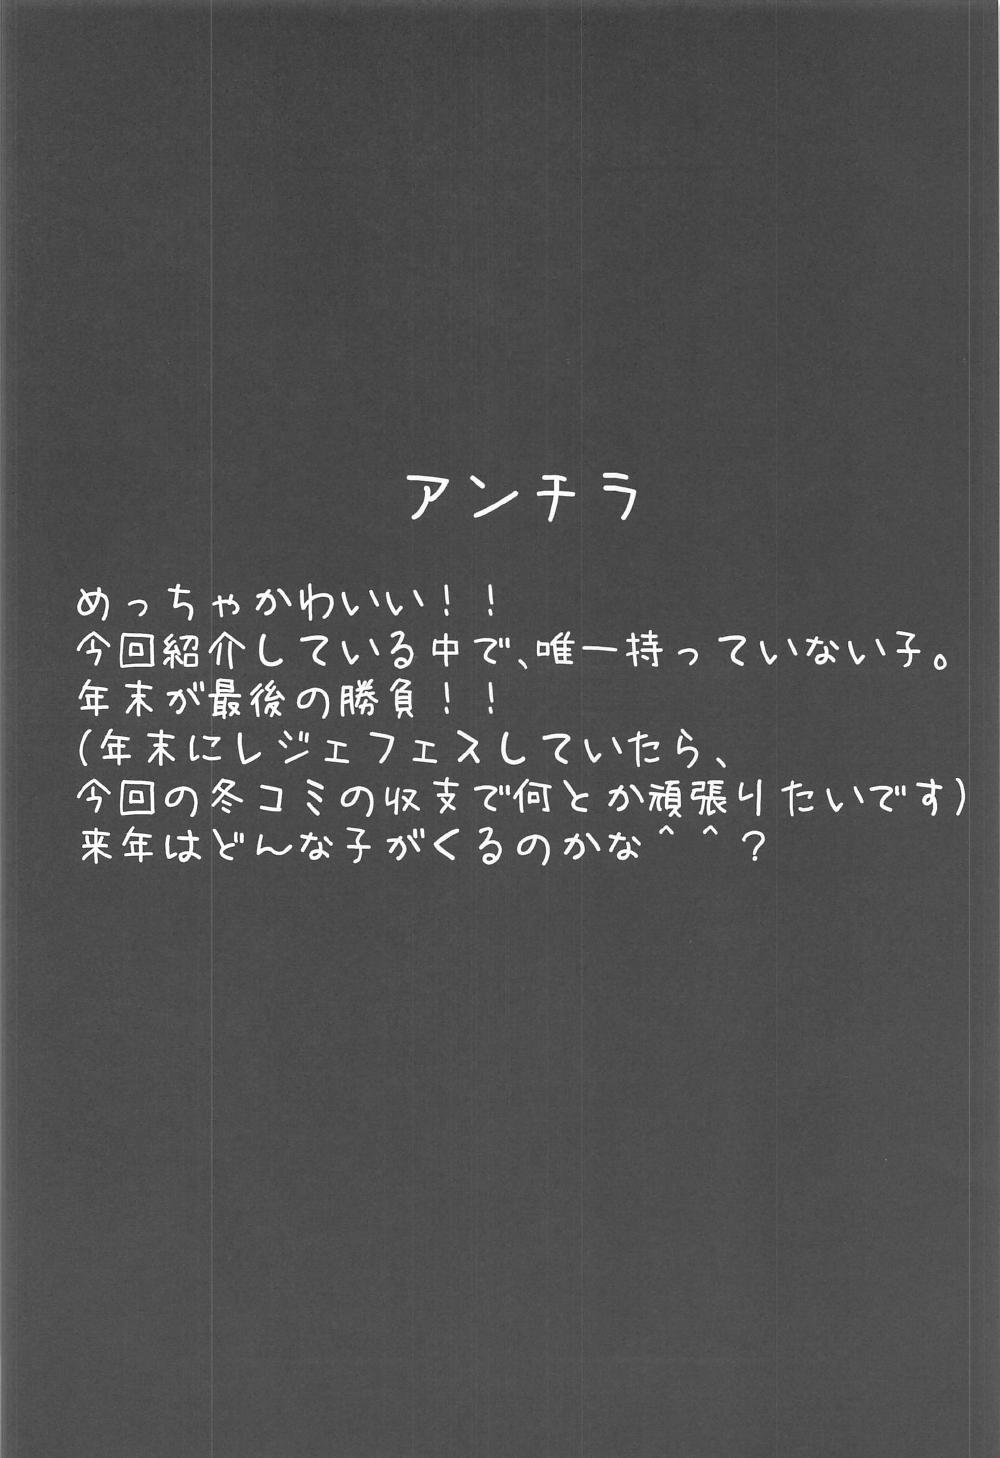 アンチラ
めっちゃかわいい！！
今回紹介している中で、唯一持っていない子。
年末が最後の勝負！！
(年末にレジェフェスしていたら、
今回の冬コミの収支で何とか頑張りたいです)
来年はどんな子がくるのかな＾＾？